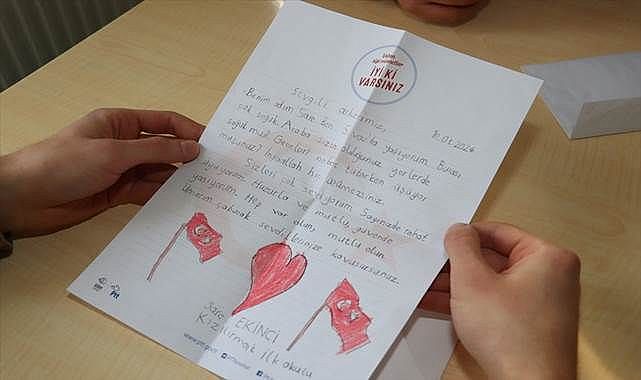 İYİ Kİ
VARSINIZ
Sevgili askerimiz,
18.01.2024
Benim adım Sare Ben Sivas'ta yaşıyorum. Burası
çok soğuk. Acaba sizin olduğunuz yerlerde
soğuk mu? Geceleri nöbet tutarken üşüyor
musunuz? İnşallah hiç üşümezsiniz.
Sizleri çok seviyorum. Sayenizde rahat
uyuyorum. Huzurla ve mutlu, güvende
yaşıyorum. Hep var olun, mutlu olun.
Umarım çabucak sevdiklerinize kavuşursunuz.
Sare EKİNCİ
Kızılırmak İlkokulu
Ptt
www.ptt.gov.tr